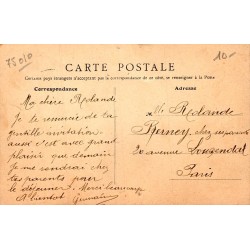 75010
10-
CARTE POSTALE
Certains pays étrangers n'acceptent pas la correspondance de ce côté, se renseigner à la Poste
Correspondance
Adresse
Ma chère Rolande
Je te remercie de ta
gentille invitation
aussi c'est avec grand
plaisir que demain
je me rendrai chez
tes parents pour le
déjeuner. Merci beaucoup
A bientôt Germain
Mlle Rolande
Berney chez ses parents
20 avenue
Paris